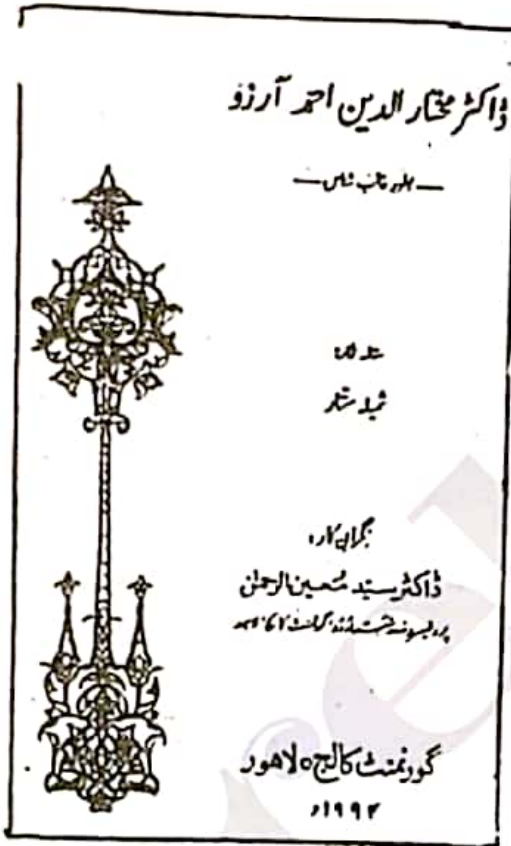 ڈاکٹر مختار الدین احمد آرزو
— بطور غالب شناس —
مقالہ نگار
ثمینہ ستار
نگران کار:
ڈاکٹر سید معین الرحمٰن
پروفیسر و صدر شعبہ اردو، گورنمنٹ کالج لاہور
گورنمنٹ کالج ہ لاہور
۱۹۹۲ء